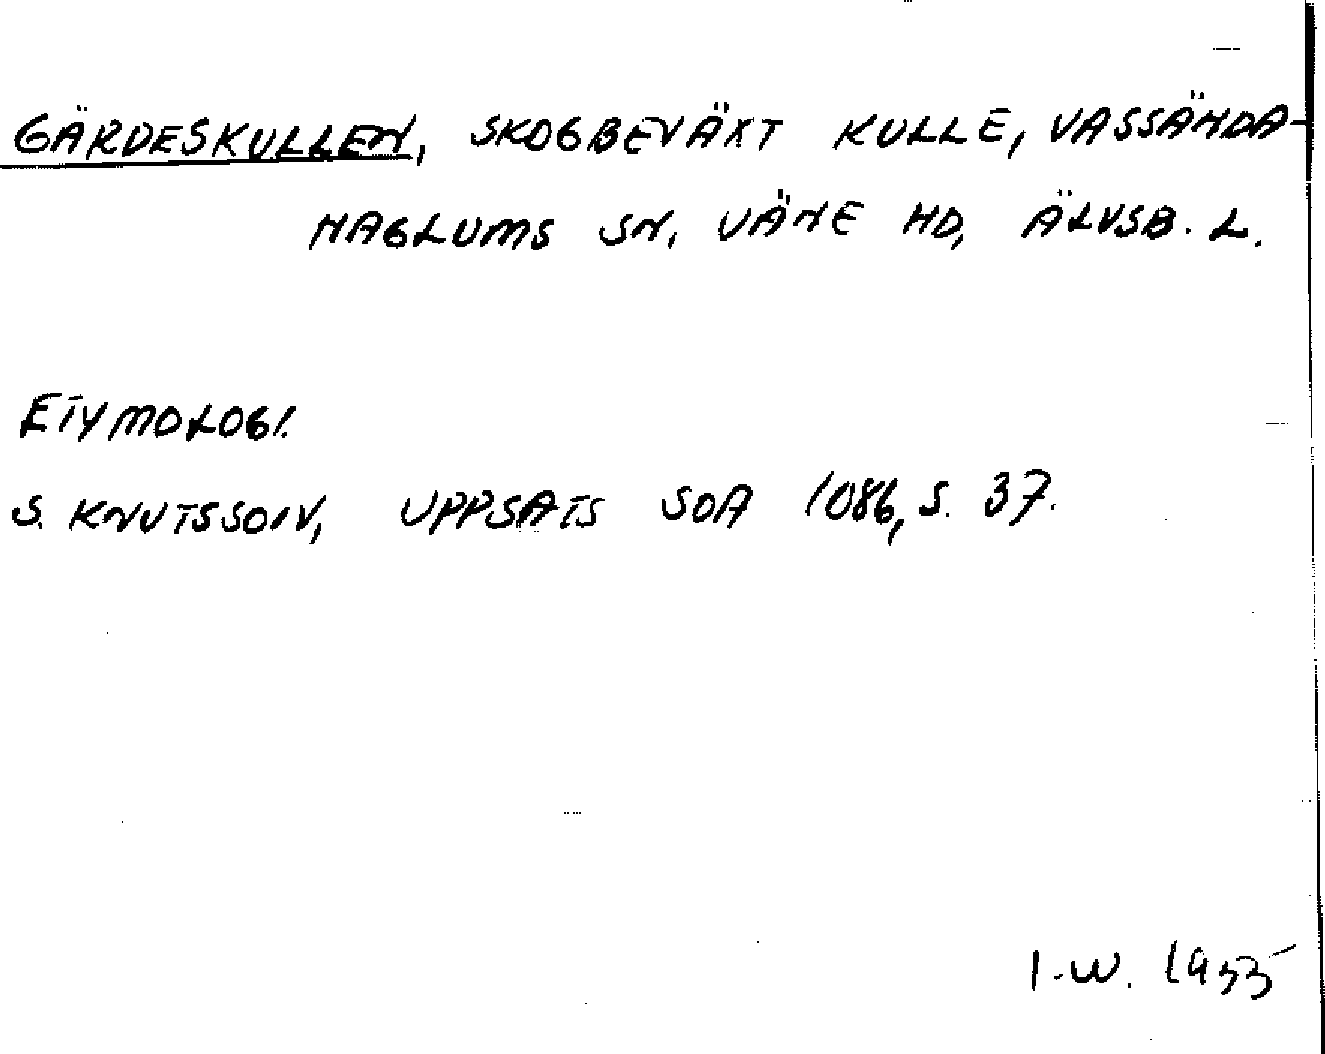 GÄRDESKULLEN, SKOGBEVÄXT KULLE, VASSÄNDA-
NAGLUMS SN, VÄNE HD, ÄLVSB. L.
ETYMOLOGI.
S. KNUTSSON, UPPSATS SOA 1086, S. 37.
I.W. 1955